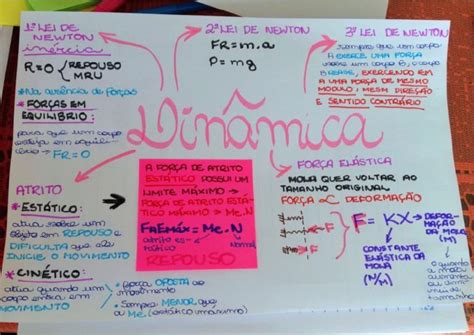 1ª LEI DE
NEWTON
inércia
R=0 → REPOUSO
MRU
*Na ausência de forças
* FORÇAS EM
EQUILÍBRIO:
para que um corpo
esteja em equilí-
brio → FR = 0
2ª LEI DE NEWTON
FR = m.a
P = mg
3ª LEI DE NEWTON
sempre que um corpo
A EXERCE UMA FORÇA
sobre um corpo B, o corpo
B REAGE, EXERCENDO EM
A UMA FORÇA DE MESMO
MÓDULO, MESM DIREÇÃO
E SENTIDO CONTRÁRIO
Dinâmica
ATRITO
* ESTÁTICO:
atua sobre um
objeto em REPOUSO e
DIFICULTA que ele
INICIE O MOVIMENTO
* CINÉTICO:
atua quando um
corpo entra em
MOVIMENTO
A FORÇA DE ATRITO
ESTÁTICO POSSUI UM
LIMITE MÁXIMO →
FORÇA DE ATRITO ESTÁ-
TICO MÁXIMO → Me.N
FAEMÁX = Me.N
atrito es-
tático
Normal
REPOUSO
• força OPOSTA ao
movimento
• Sempre MENOR que
a Me (estático máximo)
FORÇA ELÁSTICA
MOLA QUER VOLTAR AO
TAMANHO ORIGINAL
FORÇA ∝ DEFORMAÇÃO
F
F
F = KX → DEFOR-
MAÇÃO
DA MOLA
(M)
CONSTANTE
ELÁSTICA DA
MOLA
(N/M)